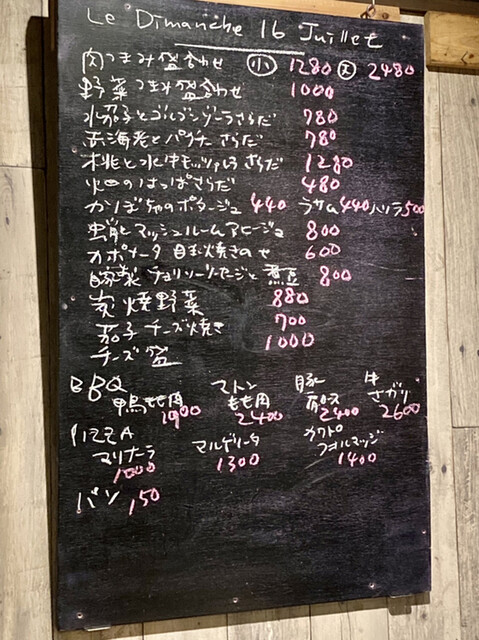 Le Dimanche 16 Juillet
肉つまみ盛合わせ 小 1280 大 2480
野菜つまみ盛合わせ 1000
水茄子とゴルゴンゾーラさらだ 780
海老とパクチーさらだ 780
桃と水牛モッツァレラさらだ 1280
畑のはっぱさらだ 480
かぼちゃのポタージュ 440 ラサム 440 ハリラ 500
マッシュルームアヒージョ 800
カポナータ 自玉焼きのせ 600
自家製チョリソーソーセージと煮豆 800
炭焼野菜 880
茄子チーズ焼き 700
チーズ盛 1000
BBQ
鴨もも肉 1900
マトンもも肉 2400
豚肩ロース 2400
牛さがり 2600
PIZZA
マリナーラ 1000
マルゲリータ 1300
クワトロフォルマッジ 1400
パン 150